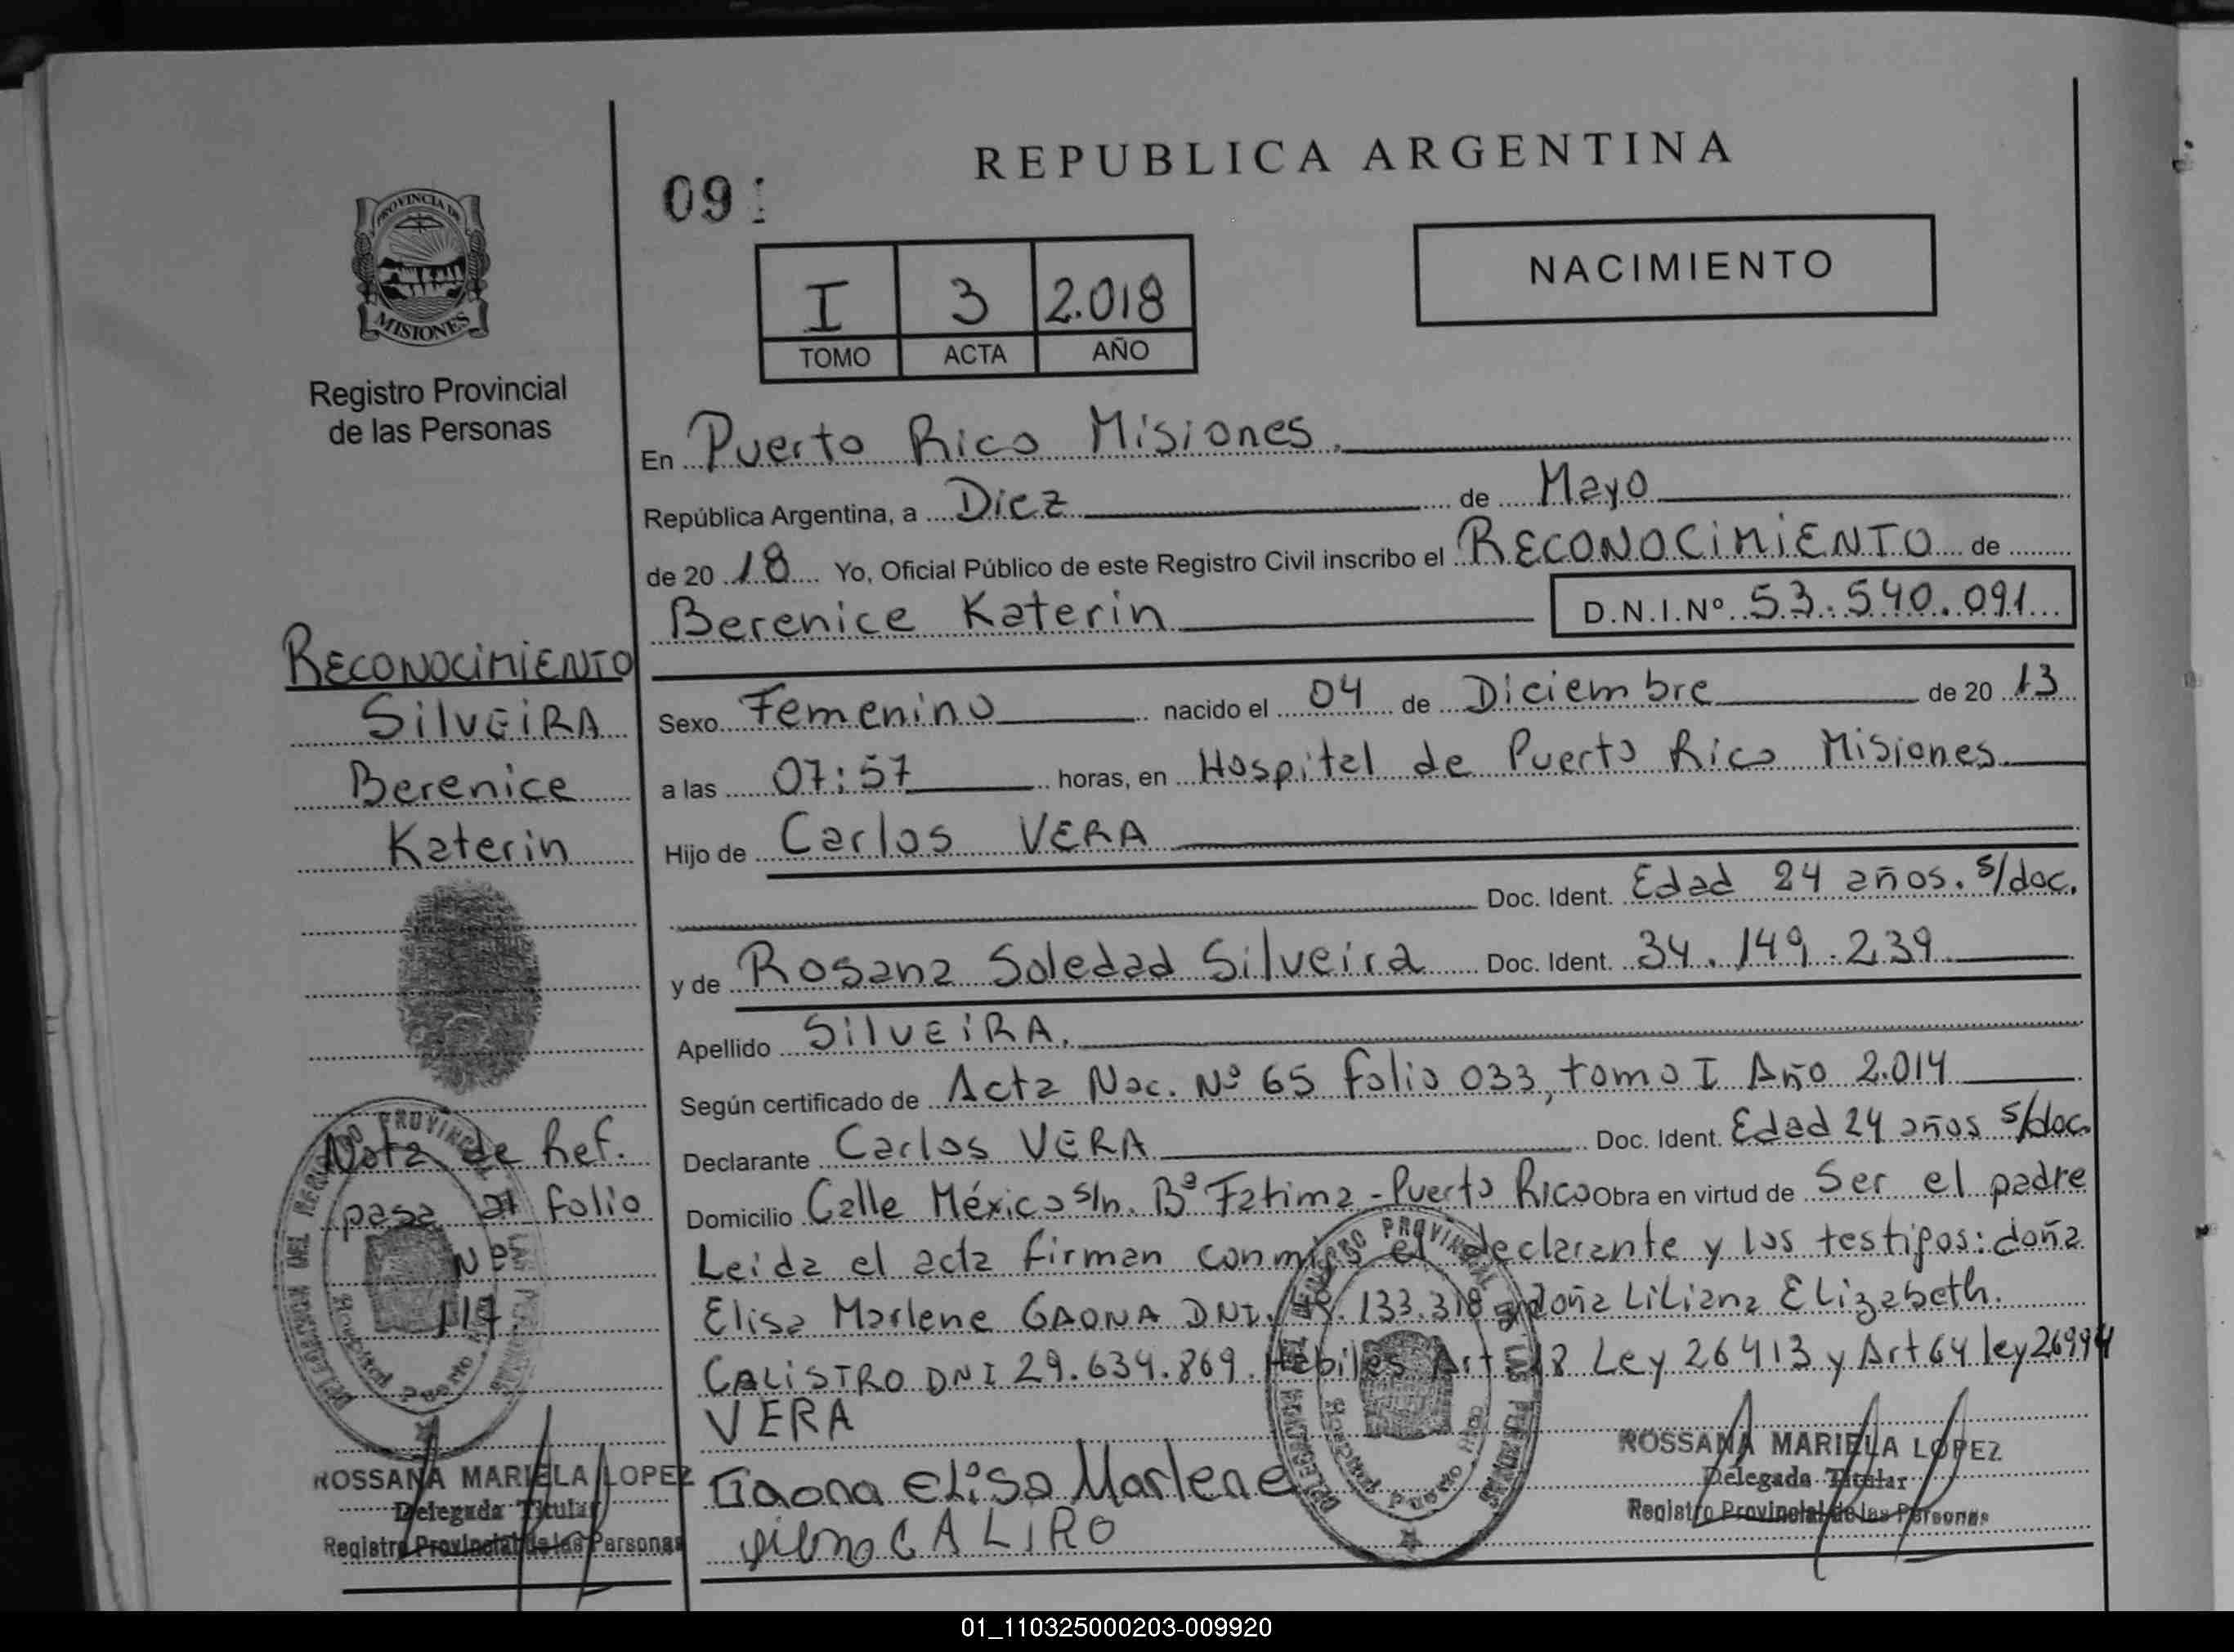 REPUBLICA ARGENTINA
09
PROVINCIA DE
MISIONES
Registro Provincial
de las Personas
I 3 2.018
TOMO ACTA AÑO
NACIMIENTO
En Puerto Rico Misiones.
República Argentina, a Diez de Mayo
de 20 18 Yo, Oficial Público de este Registro Civil inscribo el RECONOCIMIENTO de
Berenice Katerin D.N.I.Nº 53.540.091
Sexo Femenino nacido el 04 de Diciembre de 20 13
a las 07:57 horas, en Hospital de Puerto Rico Misiones
Hijo de Carlos VERA
Doc. Ident. Edad 24 años. s/doc.
y de Rosana Soledad Silveira Doc. Ident. 34.149.239
Apellido SILVEIRA.
Según certificado de Acta Nac. Nº 65 Folio 033, tomo I Año 2.014
Declarante Carlos VERA Doc. Ident. Edad 24 años s/doc.
Domicilio Calle México s/n. Bº Fatima - Puerto Rico Obra en virtud de Ser el padre
Leida el acta firman conmigo el declarante y los testigos: doña
Elisa Marlene GAONA DNI. 133.318 y doña Liliana Elizabeth.
CALISTRO DNI 29.634.869. Habiles Art 18 Ley 26413 y Art 64 ley 26994
VERA
Gaona Elisa Marlene
CALIRO
ROSSANA MARIELA LOPEZ
Delegada Titular
Registro Provincial de las Personas
RECONOCIMIENTO
SILVEIRA
Berenice
Katerin
Nota de Ref.
pasa al folio
Nº
117
ROSSANA MARIELA LOPEZ
Delegada Titular
Registro Provincial de las Personas
01_110325000203-009920